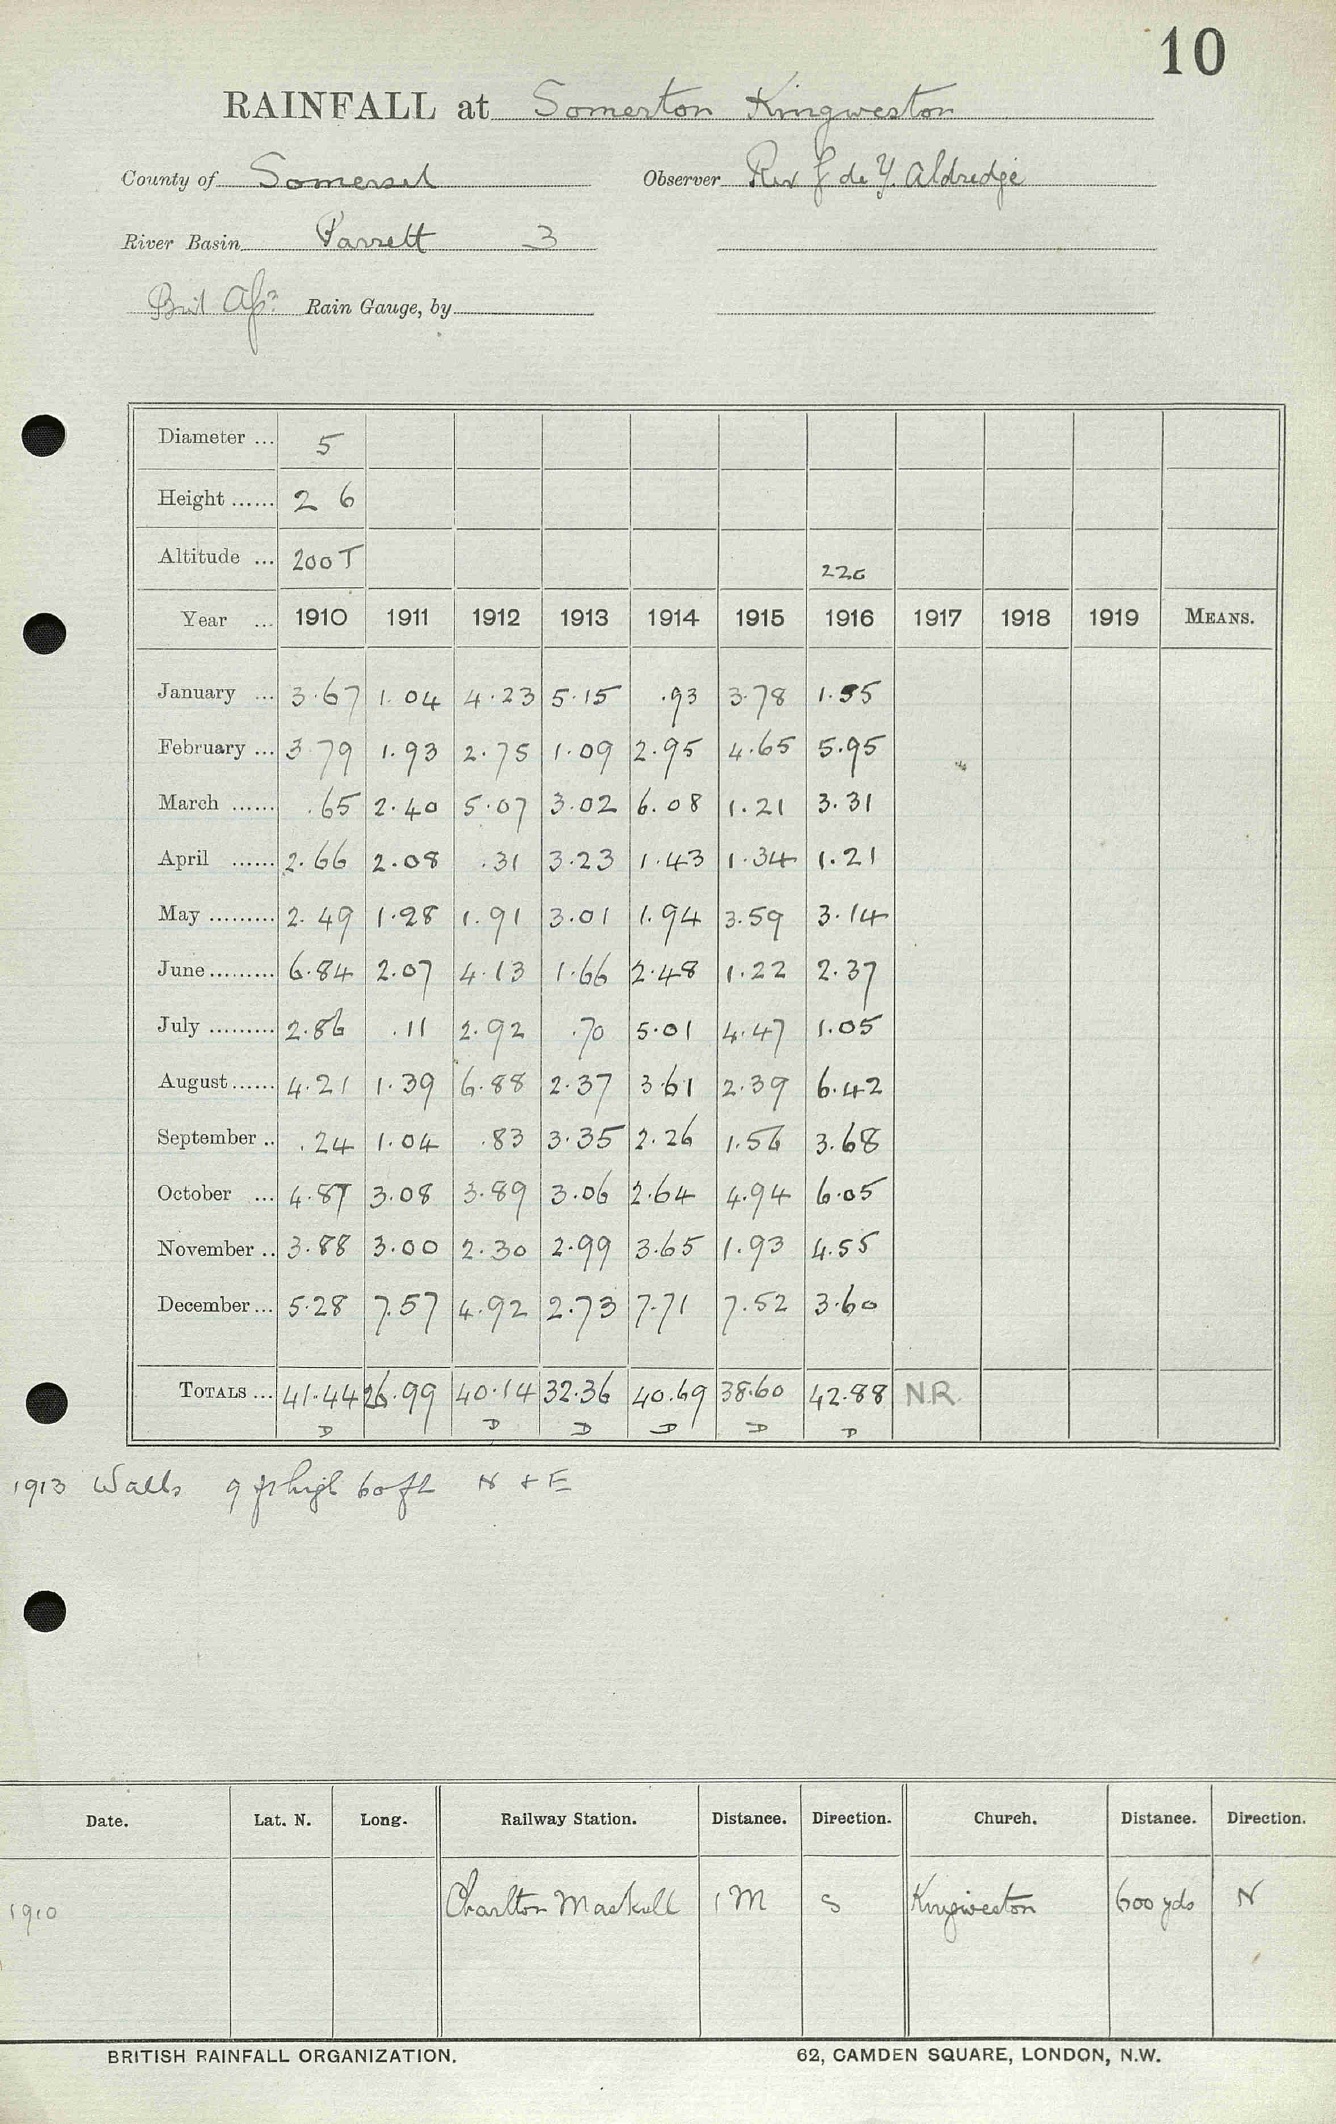 10
RAINFALL at Somerton Kingweston
County of Somerset Observer Rev J de Y. Aldredge
River Basin Parrett 3
Brit Assn Rain Gauge, by
Diameter ... 5
Height ...... 2 6
Altitude ... 200 T 220
Year ... 1910 1911 1912 1913 1914 1915 1916 1917 1918 1919 MEANS.
January ... 3.67 1.04 4.23 5.15 .93 3.78 1.55
February ... 3.79 1.93 2.75 1.09 2.95 4.65 5.95
March ...... .65 2.40 5.07 3.02 6.08 1.21 3.31
April ...... 2.66 2.08 .31 3.23 1.43 1.34 1.21
May ......... 2.49 1.28 1.91 3.01 1.94 3.59 3.14
June ......... 6.84 2.07 4.13 1.66 2.48 1.22 2.37
July ......... 2.86 .11 2.92 .70 5.01 4.47 1.05
August ...... 4.21 1.39 6.88 2.37 3.61 2.39 6.42
September .. .24 1.04 .83 3.35 2.26 1.56 3.68
October ... 4.87 3.08 3.89 3.06 2.64 4.94 6.05
November .. 3.88 3.00 2.30 2.99 3.65 1.93 4.55
December ... 5.28 7.57 4.92 2.73 7.71 7.52 3.60
TOTALS ... 41.44 26.99 40.14 32.36 40.69 38.60 42.88 N.R.
D D D D D D
1913 Walls 9 ft high 60 ft N & E
Date. Lat. N. Long. Railway Station. Distance. Direction. Church. Distance. Direction.
1910 Charlton Mackrell 1 M S Kingweston 600 yds N
BRITISH RAINFALL ORGANIZATION. 62, CAMDEN SQUARE, LONDON, N.W.